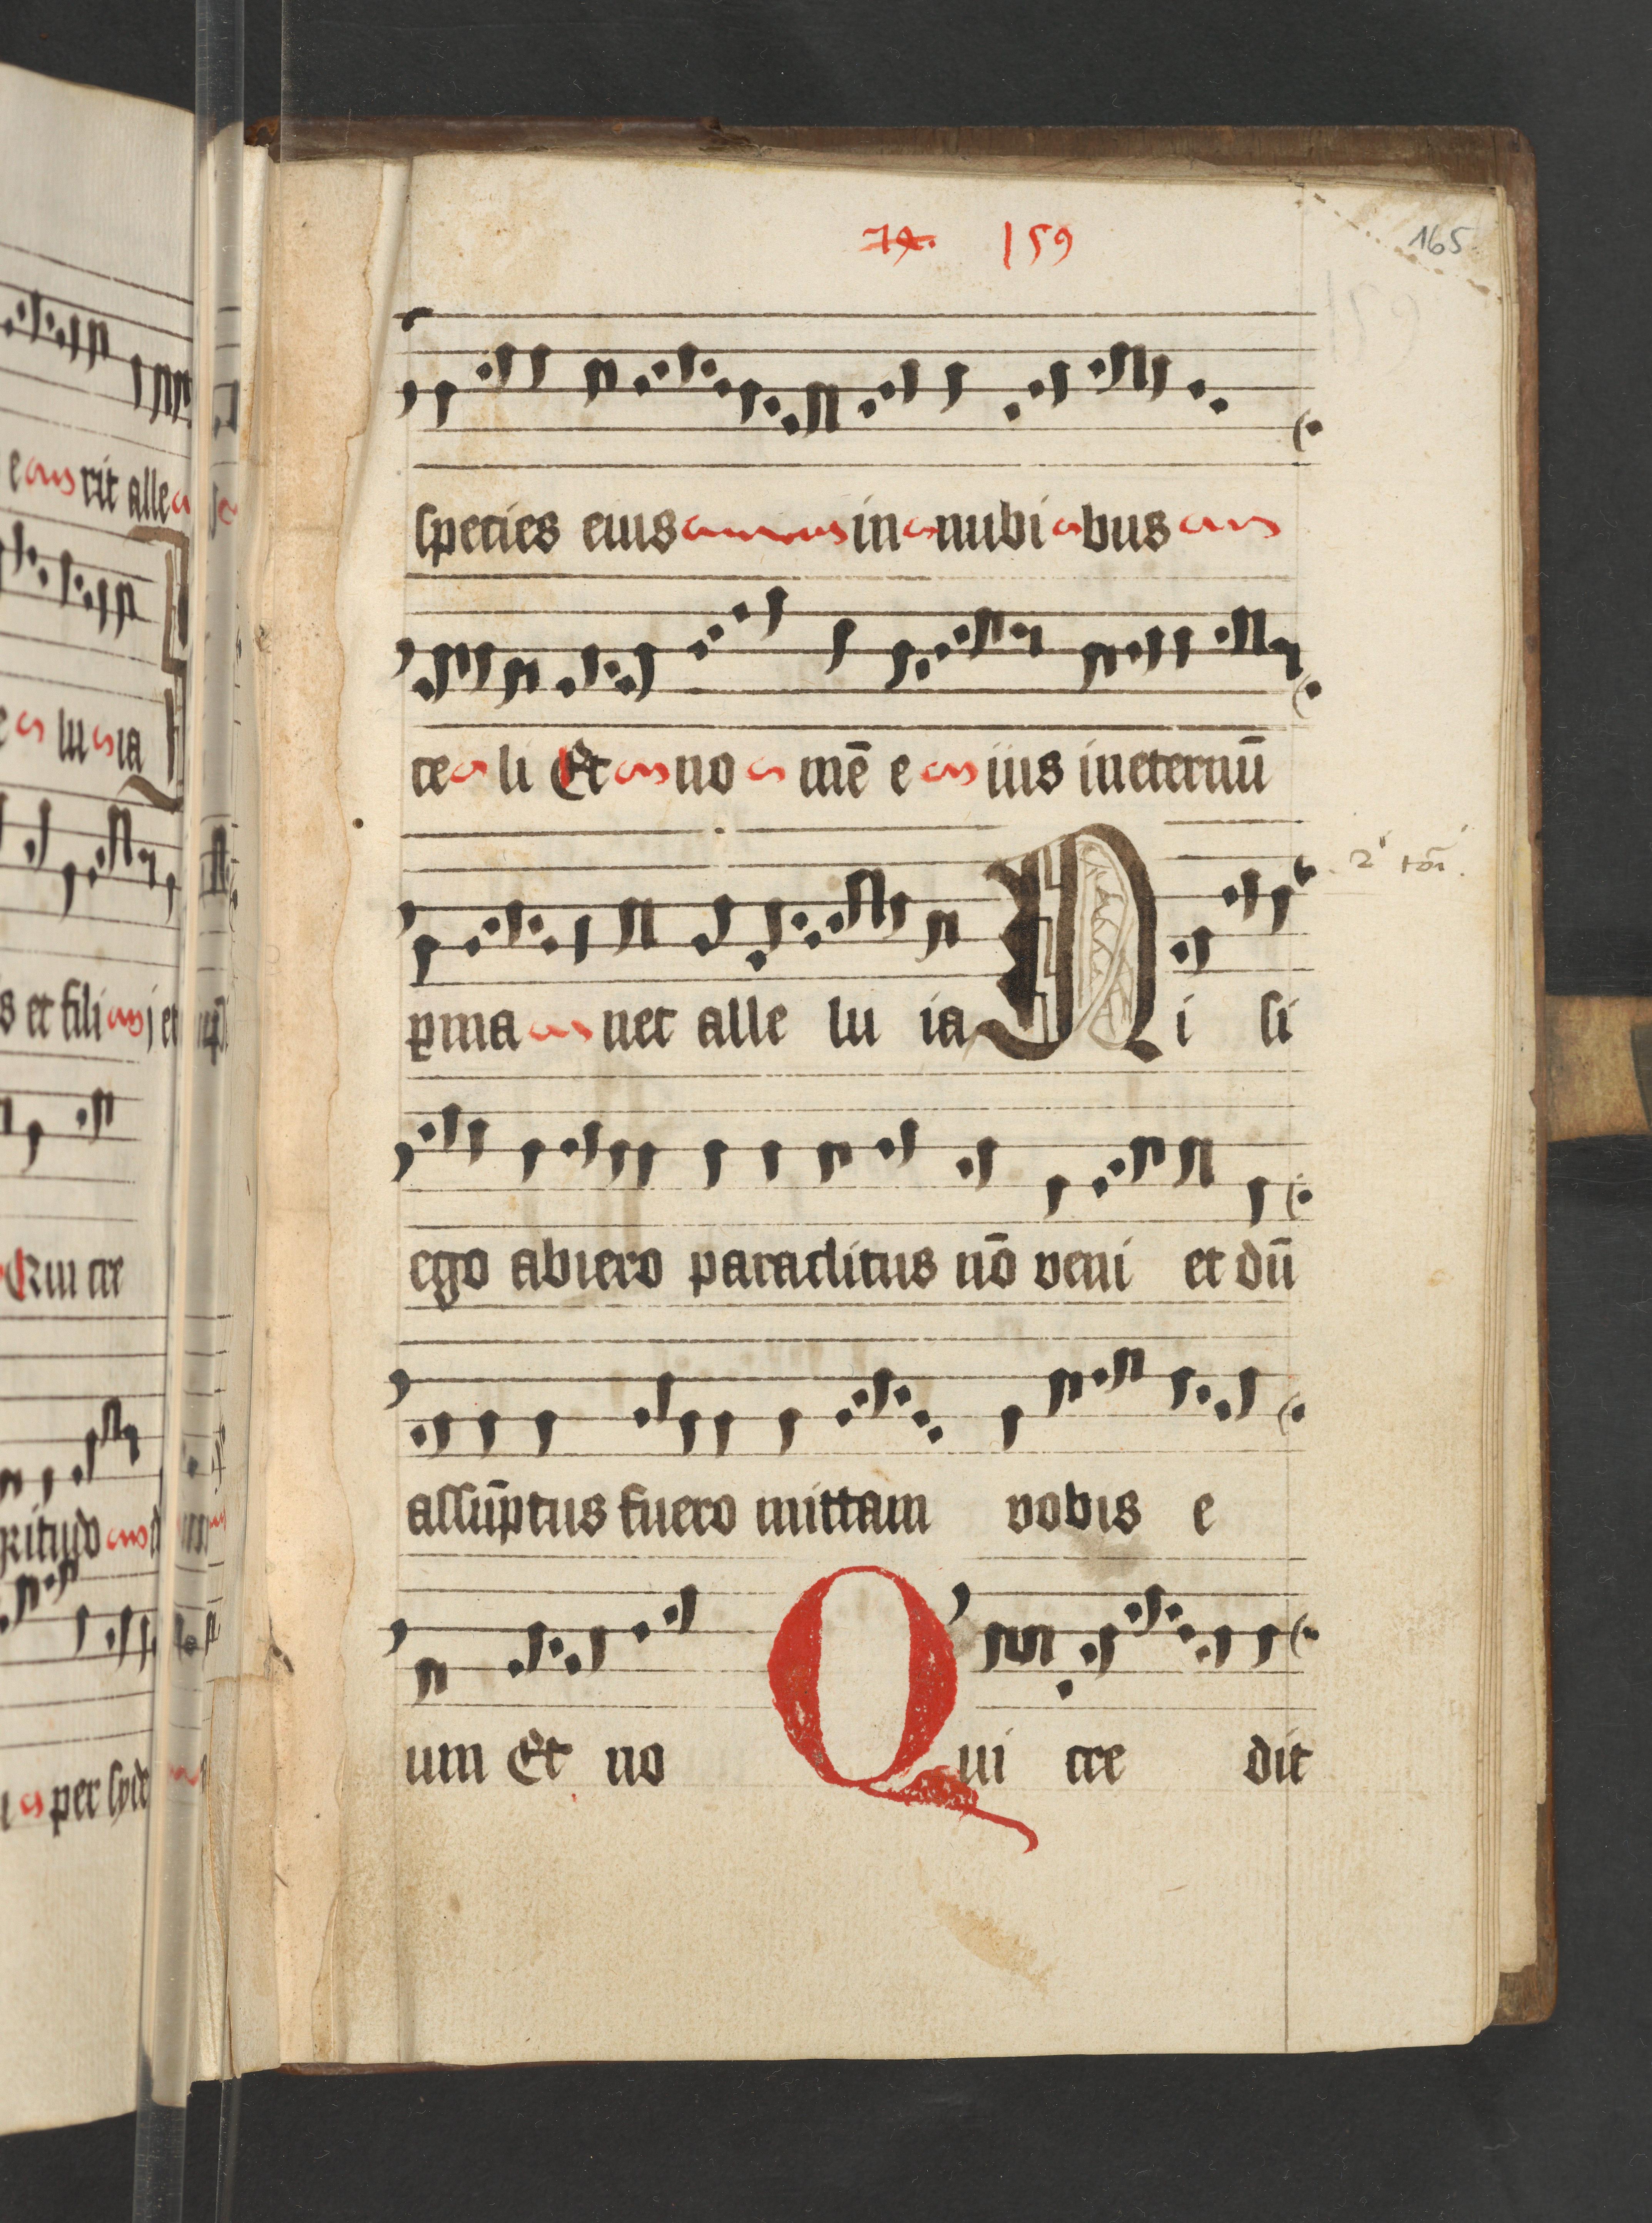 159
165
species eius in nubi bus
ce li Et no mē e iius in eternū
2ⁱ toī.
ꝑma net alle lu ia Ni si
ego abiero paraclitus nō veni et dū
assūptus fuero mittam vobis e
um Et no Qui cre dit
e rit alle
e lu ia
s et fili j et
Qui cre
ritudo
per syde